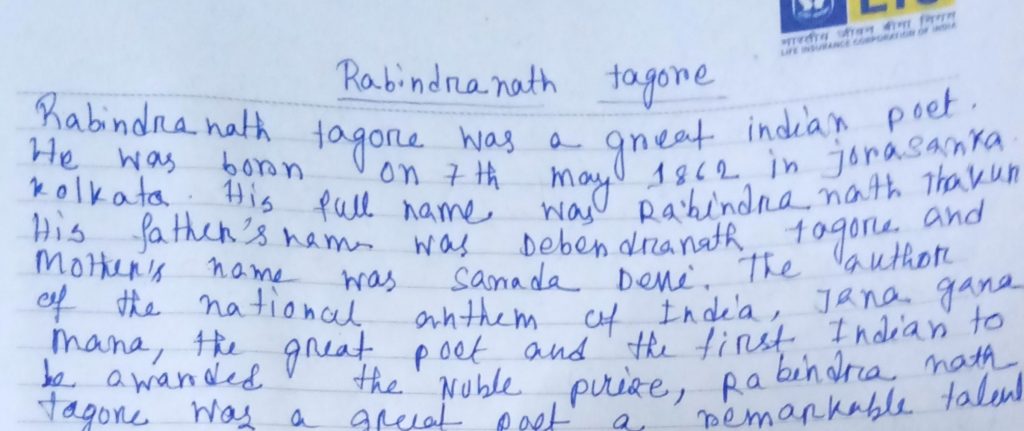 LIC
भारतीय जीवन बीमा निगम
LIFE INSURANCE CORPORATION OF INDIA
Rabindranath tagore
Rabindranath tagore was a great indian poet.
He was boron on 7th may 1862 in jorasanka
kolkata. His full name was Rabindra nath Thakur
His father's name was Debendranath tagore and
Mother's name was Sarada Devi. The author
of the national anthem of India, Jana gana
mana, the great poet and the first Indian to
be awarded the Noble prize, Rabindra nath
tagore was a great poet a remarkable talent